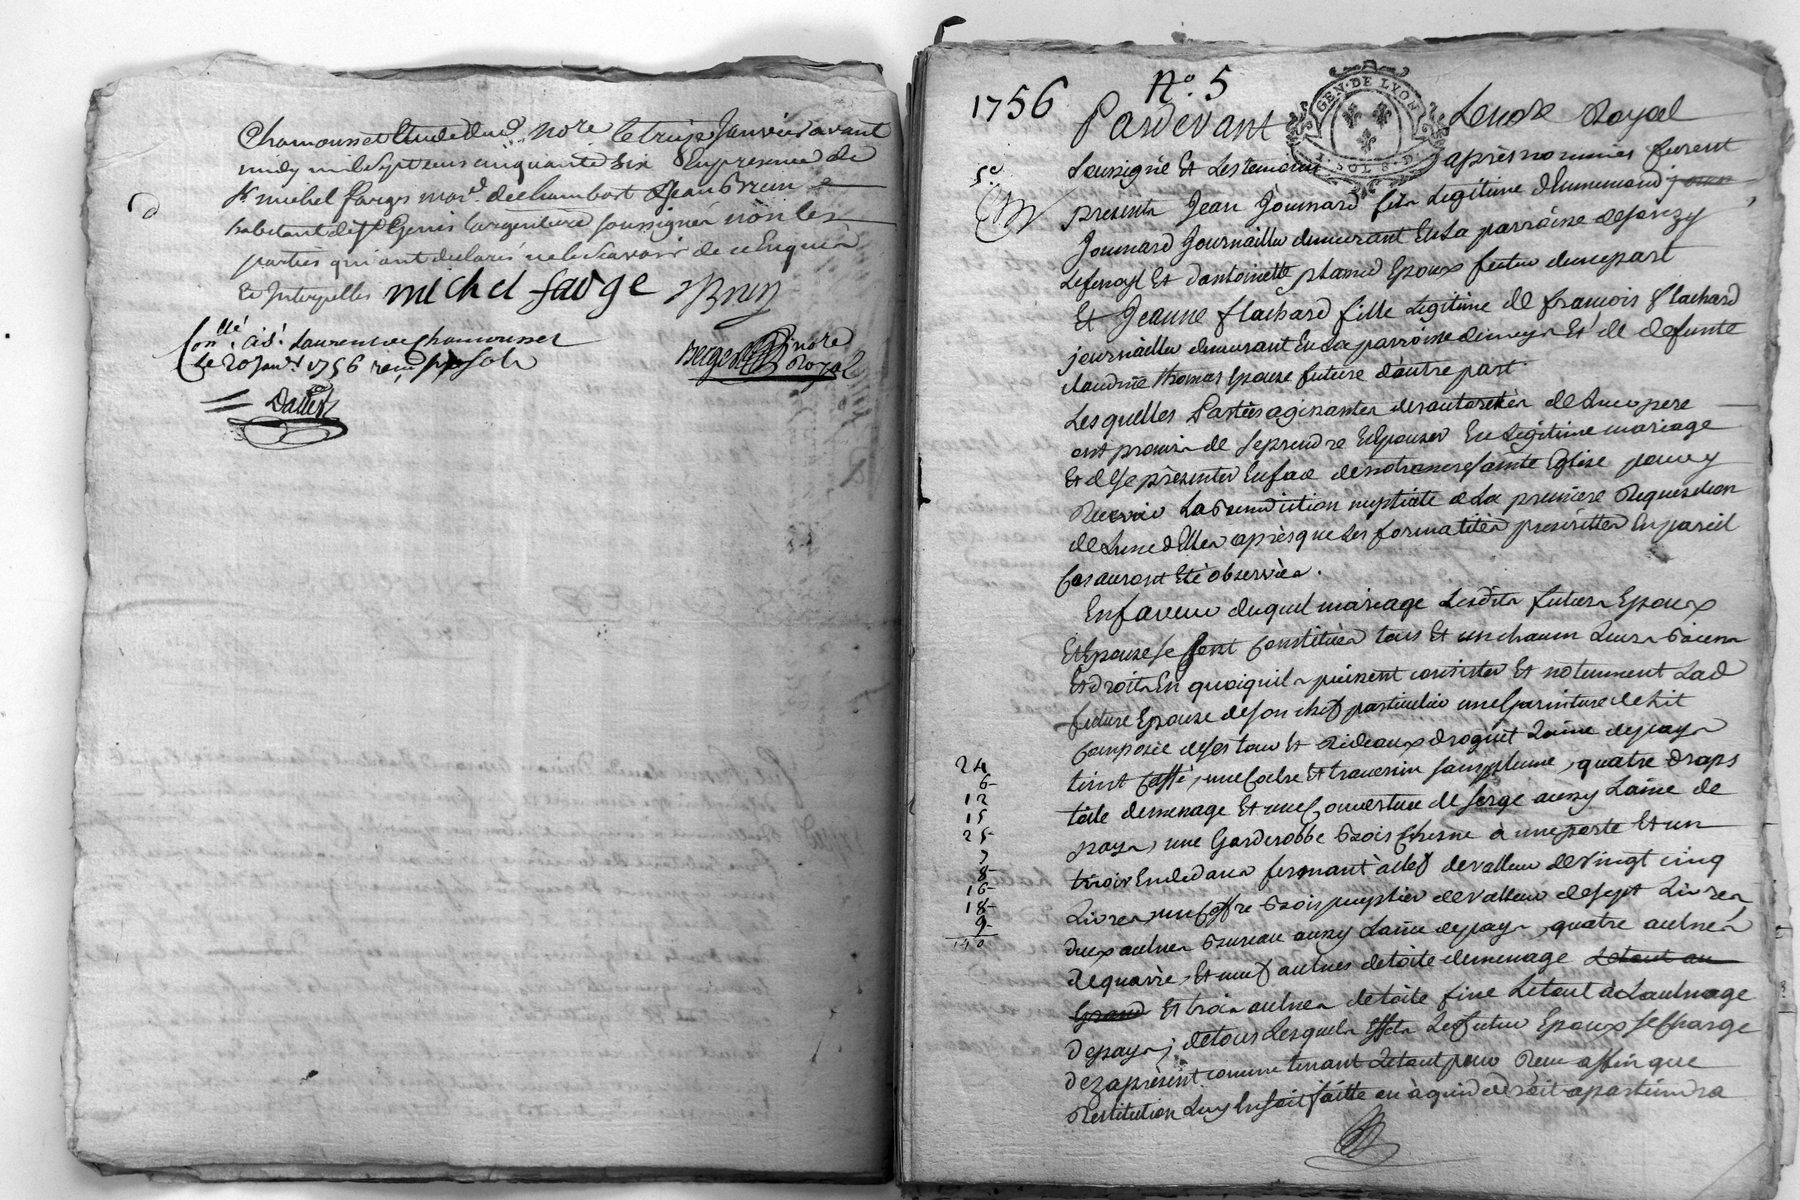 Chamousset Etude dud nore le treize Janvier avant
midy mil sept cens cinquante six En presence de
Sr michel farges mar.d de chambost & Jean Brun
habitant de St Genis Largentiere soussignés non les
parties qui ont declarés ne le scavoir de ce Enquis
Et Interpellés michel farge JBrun
Con.llé aisi Laurent de Chamousset
le 20 Janv. 1756 reçu sols
nore
Royal
1756 No. 5
GEN. DE LYON
Pardevant Le nore Royal
5e
soussigné Et Les temoins après nommés furent
presents Jean Joannard fils Legitime d'Ennemond
Joannard Journaillier demeurant En La parroisse de
Et d'antoinette Epoux futur d'une part
Et Jeanne flachard fille Legitime de françois flachard
journaillier demeurant En La parroisse de meys Et de defunte
claudine thomas Epouse future d'autre part.
Lesquelles Parties agissantes des autorités de Leurs pere
ont promis de se prendre Et Epouser En Legitime mariage
Et de se présenter En face de notre mere sainte Eglise pour y
Recevoir La Benediction nuptiale a La premiere Requisition
de L'une d'Elles après que Les formalités prescrittes En pareil
Cas auront Eté observées.
En faveur duquel mariage Lesdits futurs Epoux
Et Epouse se sont Constitués tous Et un chacun Leurs Biens
Et droits En quoi qu'ils puissent consister Et notemment Lad
future Epouse de son chef particulier une Garniture de Lit
Composée de ses tour Et Rideaux droguet Laine de pays
24
teint Caffé, une Coitre Et traversin sans plume, quatre draps
6
12
toile de menage Et une Couverture de serge aussy Laine de
15
pays, une Garderobbe Bois Chesne a une porte Et un
25
7
tiroir En dedans fermant à clef de valleur de vingt cinq
8
16
Livres, un Coffre Bois peuplier de valleur de sept Livres,
18
9
deux aulnes Bureau aussy Laine de pays, quatre aulnes
140
Et neuf aulnes de toile de menage Le tout au
Grand Et trois aulnes de toile fine Le tout à L'aulnage
de pays; de tous Lesquels Effets Ledt futur Epoux se Charge
dez aprésent comme tenant Le tout pour Reçu affin que
Restitution Luy En soit faitte ou à qui de droit apartiendra